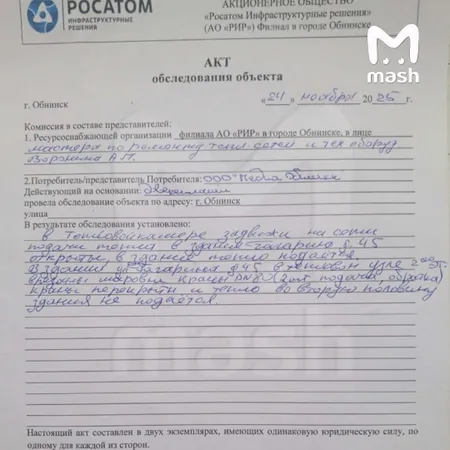 РОСАТОМ
ИНФРАСТРУКТУРНЫЕ
РЕШЕНИЯ
АКЦИОНЕРНОЕ ОБЩЕСТВО
«Росатом Инфраструктурные решения»
(АО «РИР») Филиал в городе Обнинске
mash
АКТ
обследования объекта
г. Обнинск
«24» ноября 2025 г.
Комиссия в составе представителей:
1. Ресурсоснабжающей организации филиала АО «РИР» в городе Обнинске, в лице
мастера по ремонту тепл. сетей и тех. оборуд.
Воронина А.П.
2.Потребитель/представитель Потребителя: ООО
Действующий на основании:
провела обследование объекта по адресу: г. Обнинск
улица
В результате обследования установлено:
в Тепловой камере задвижки на
подачи тепла в здание Гагарина д. 45
открыты, в здание тепло подаётся.
В здании ул. Гагарина д 45 в тепловом узле
врезаны шаровые краны подача, обратка)
краны перекрыты и тепло во вторую половину
здания не подаётся.
mash
Настоящий акт составлен в двух экземплярах, имеющих одинаковую юридическую силу, по
одному для каждой из сторон.